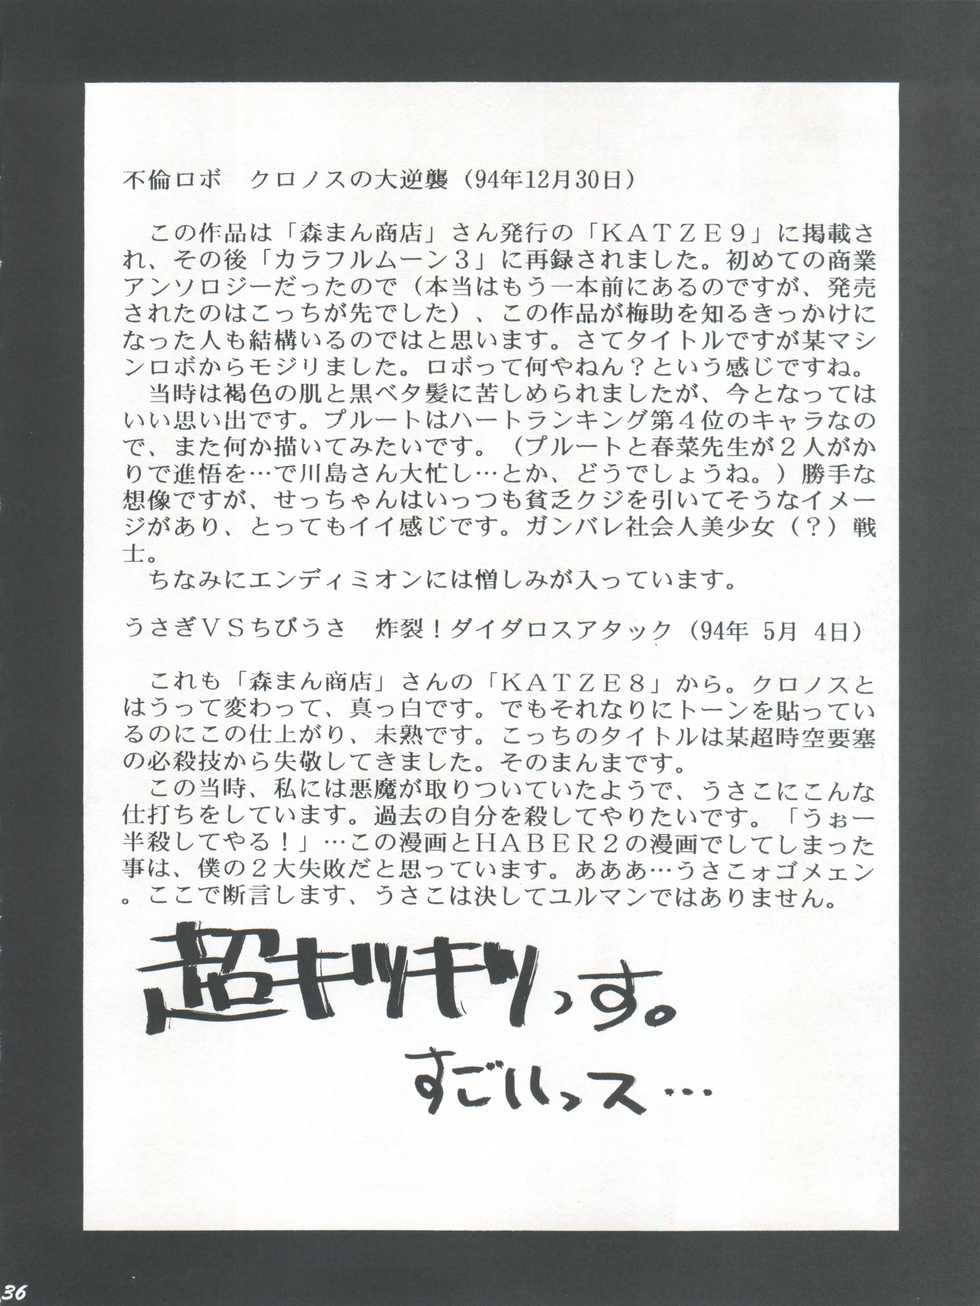 不倫ロボ　クロノスの大逆襲（94年12月30日）
　この作品は「森まん商店」さん発行の「ＫＡＴＺＥ９」に掲載さ
れ、その後「カラフルムーン３」に再録されました。初めての商業
アンソロジーだったので（本当はもう一本前にあるのですが、発売
されたのはこっちが先でした）、この作品が梅助を知るきっかけに
なった人も結構いるのではと思います。さてタイトルですが某マシ
ンロボからモジリました。ロボって何やねん？という感じですね。
　当時は褐色の肌と黒ベタ髪に苦しめられましたが、今となっては
いい思い出です。プルートはハートランキング第４位のキャラなの
で、また何か描いてみたいです。（プルートと春菜先生が２人がか
りで進悟を…で川島さん大忙し…とか、どうでしょうね。）勝手な
想像ですが、せっちゃんはいっつも貧乏クジを引いてそうなイメー
ジがあり、とってもイイ感じです。ガンバレ社会人美少女（？）戦
士。
　ちなみにエンディミオンには憎しみが入っています。
うさぎＶＳちびうさ　炸裂！ダイダロスアタック（94年 5月 4日）
　これも「森まん商店」さんの「ＫＡＴＺＥ８」から。クロノスと
はうって変わって、真っ白です。でもそれなりにトーンを貼ってい
るのにこの仕上がり、未熟です。こっちのタイトルは某超時空要塞
の必殺技から失敬してきました。そのまんまです。
　この当時、私には悪魔が取りついていたようで、うさこにこんな
仕打ちをしています。過去の自分を殺してやりたいです。「うぉー
半殺してやる！」…この漫画とＨＡＢＥＲ２の漫画でしてしまった
事は、僕の２大失敗だと思っています。あああ…うさこォゴメェン
。ここで断言します、うさこは決してユルマンではありません。
超キツキツっす。
すごいっス…
36